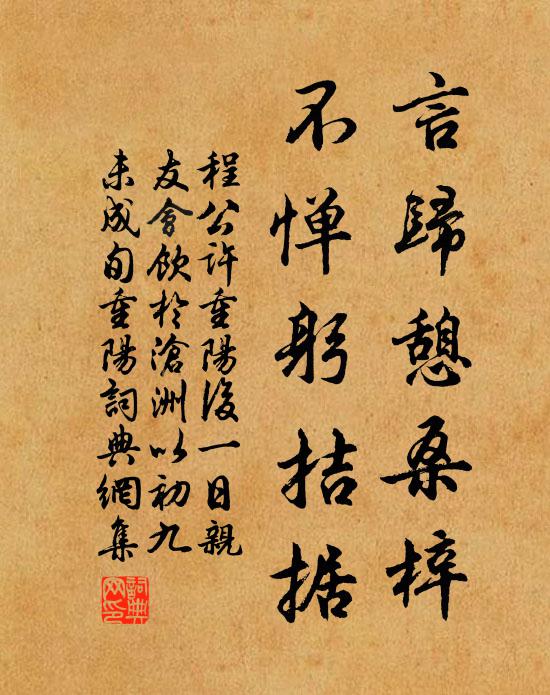 言歸憩桑梓
不惮躬拮据
程公許重陽後一日親
友會飲於滄洲以初九
未成旬重陽詞典網集
詞典
网印